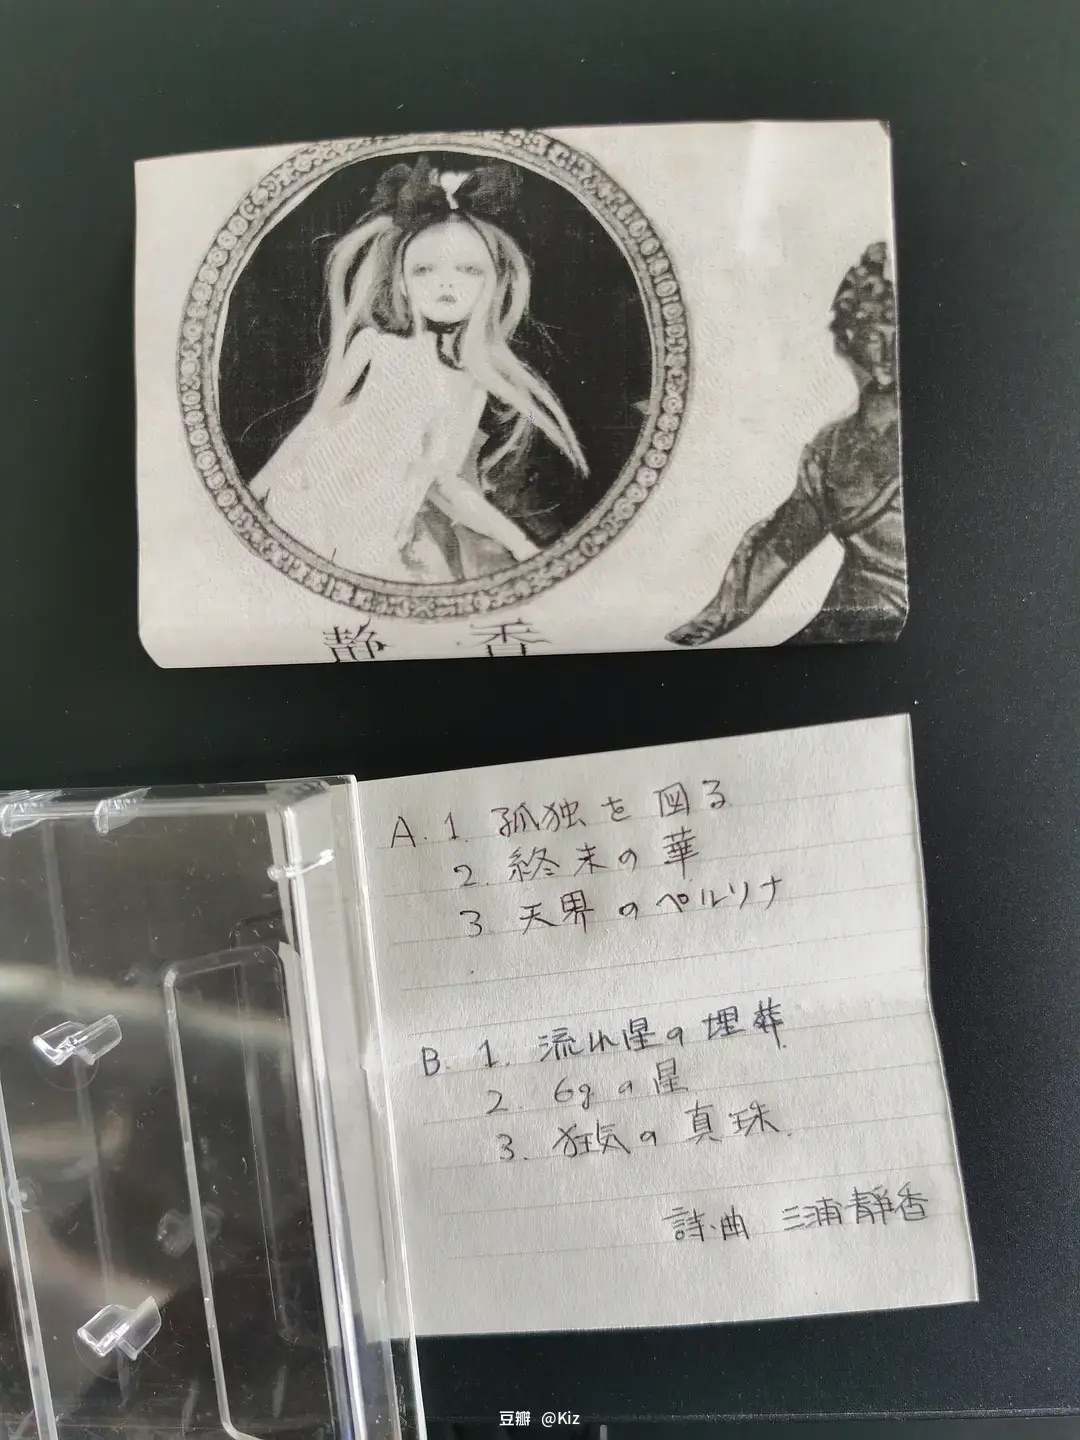 静香
A. 1. 孤独を図る
2. 終末の華
3. 天界のペルソナ
B. 1. 流れ星の埋葬.
2. 6gの星
3. 狂気の真珠.
詩・曲 三浦靜香
豆瓣 @Kiz